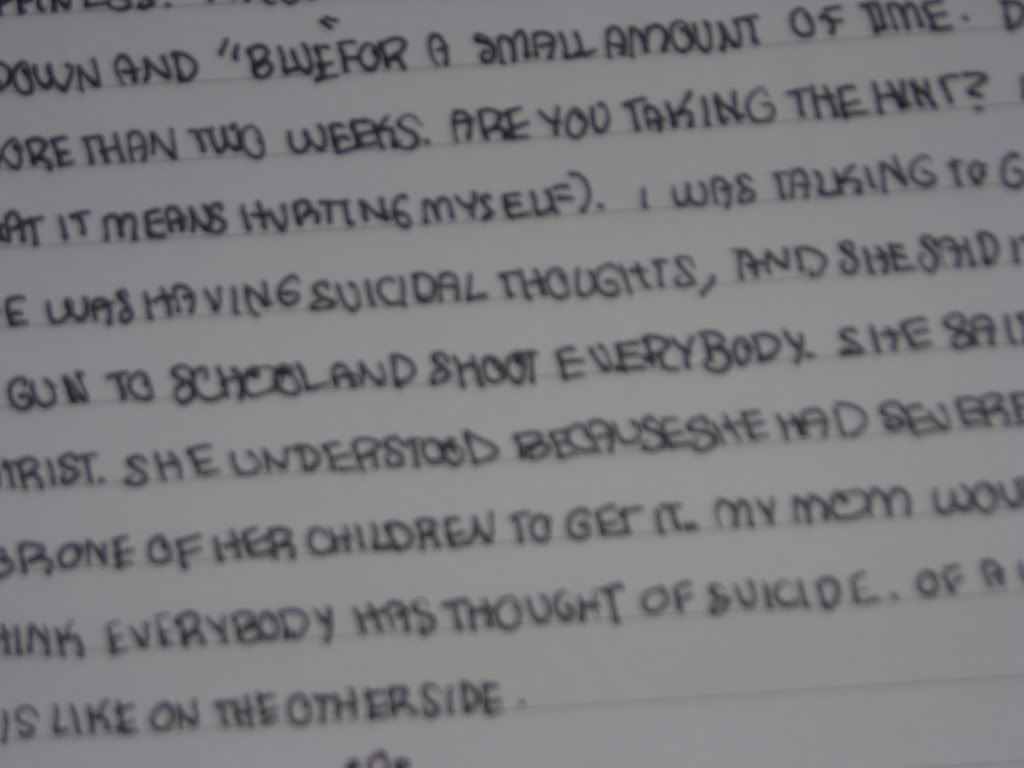 DOWN AND "BLUE" FOR A SMALL AMOUNT OF TIME. D
ORE THAN TWO WEEKS. ARE YOU TAKING THE HINT?
AT IT MEANS HURTING MYSELF). I WAS TALKING TO G
E WAS HAVING SUICIDAL THOUGHTS, AND SHE SAID I
GUN TO SCHOOL AND SHOOT EVERYBODY. SHE SAID
TRIST. SHE UNDERSTOOD BECAUSE SHE HAD SEVERE
OR ONE OF HER CHILDREN TO GET IT. MY MOM WOU
HINK EVERYBODY HAS THOUGHT OF SUICIDE. OF A
IS LIKE ON THE OTHER SIDE.